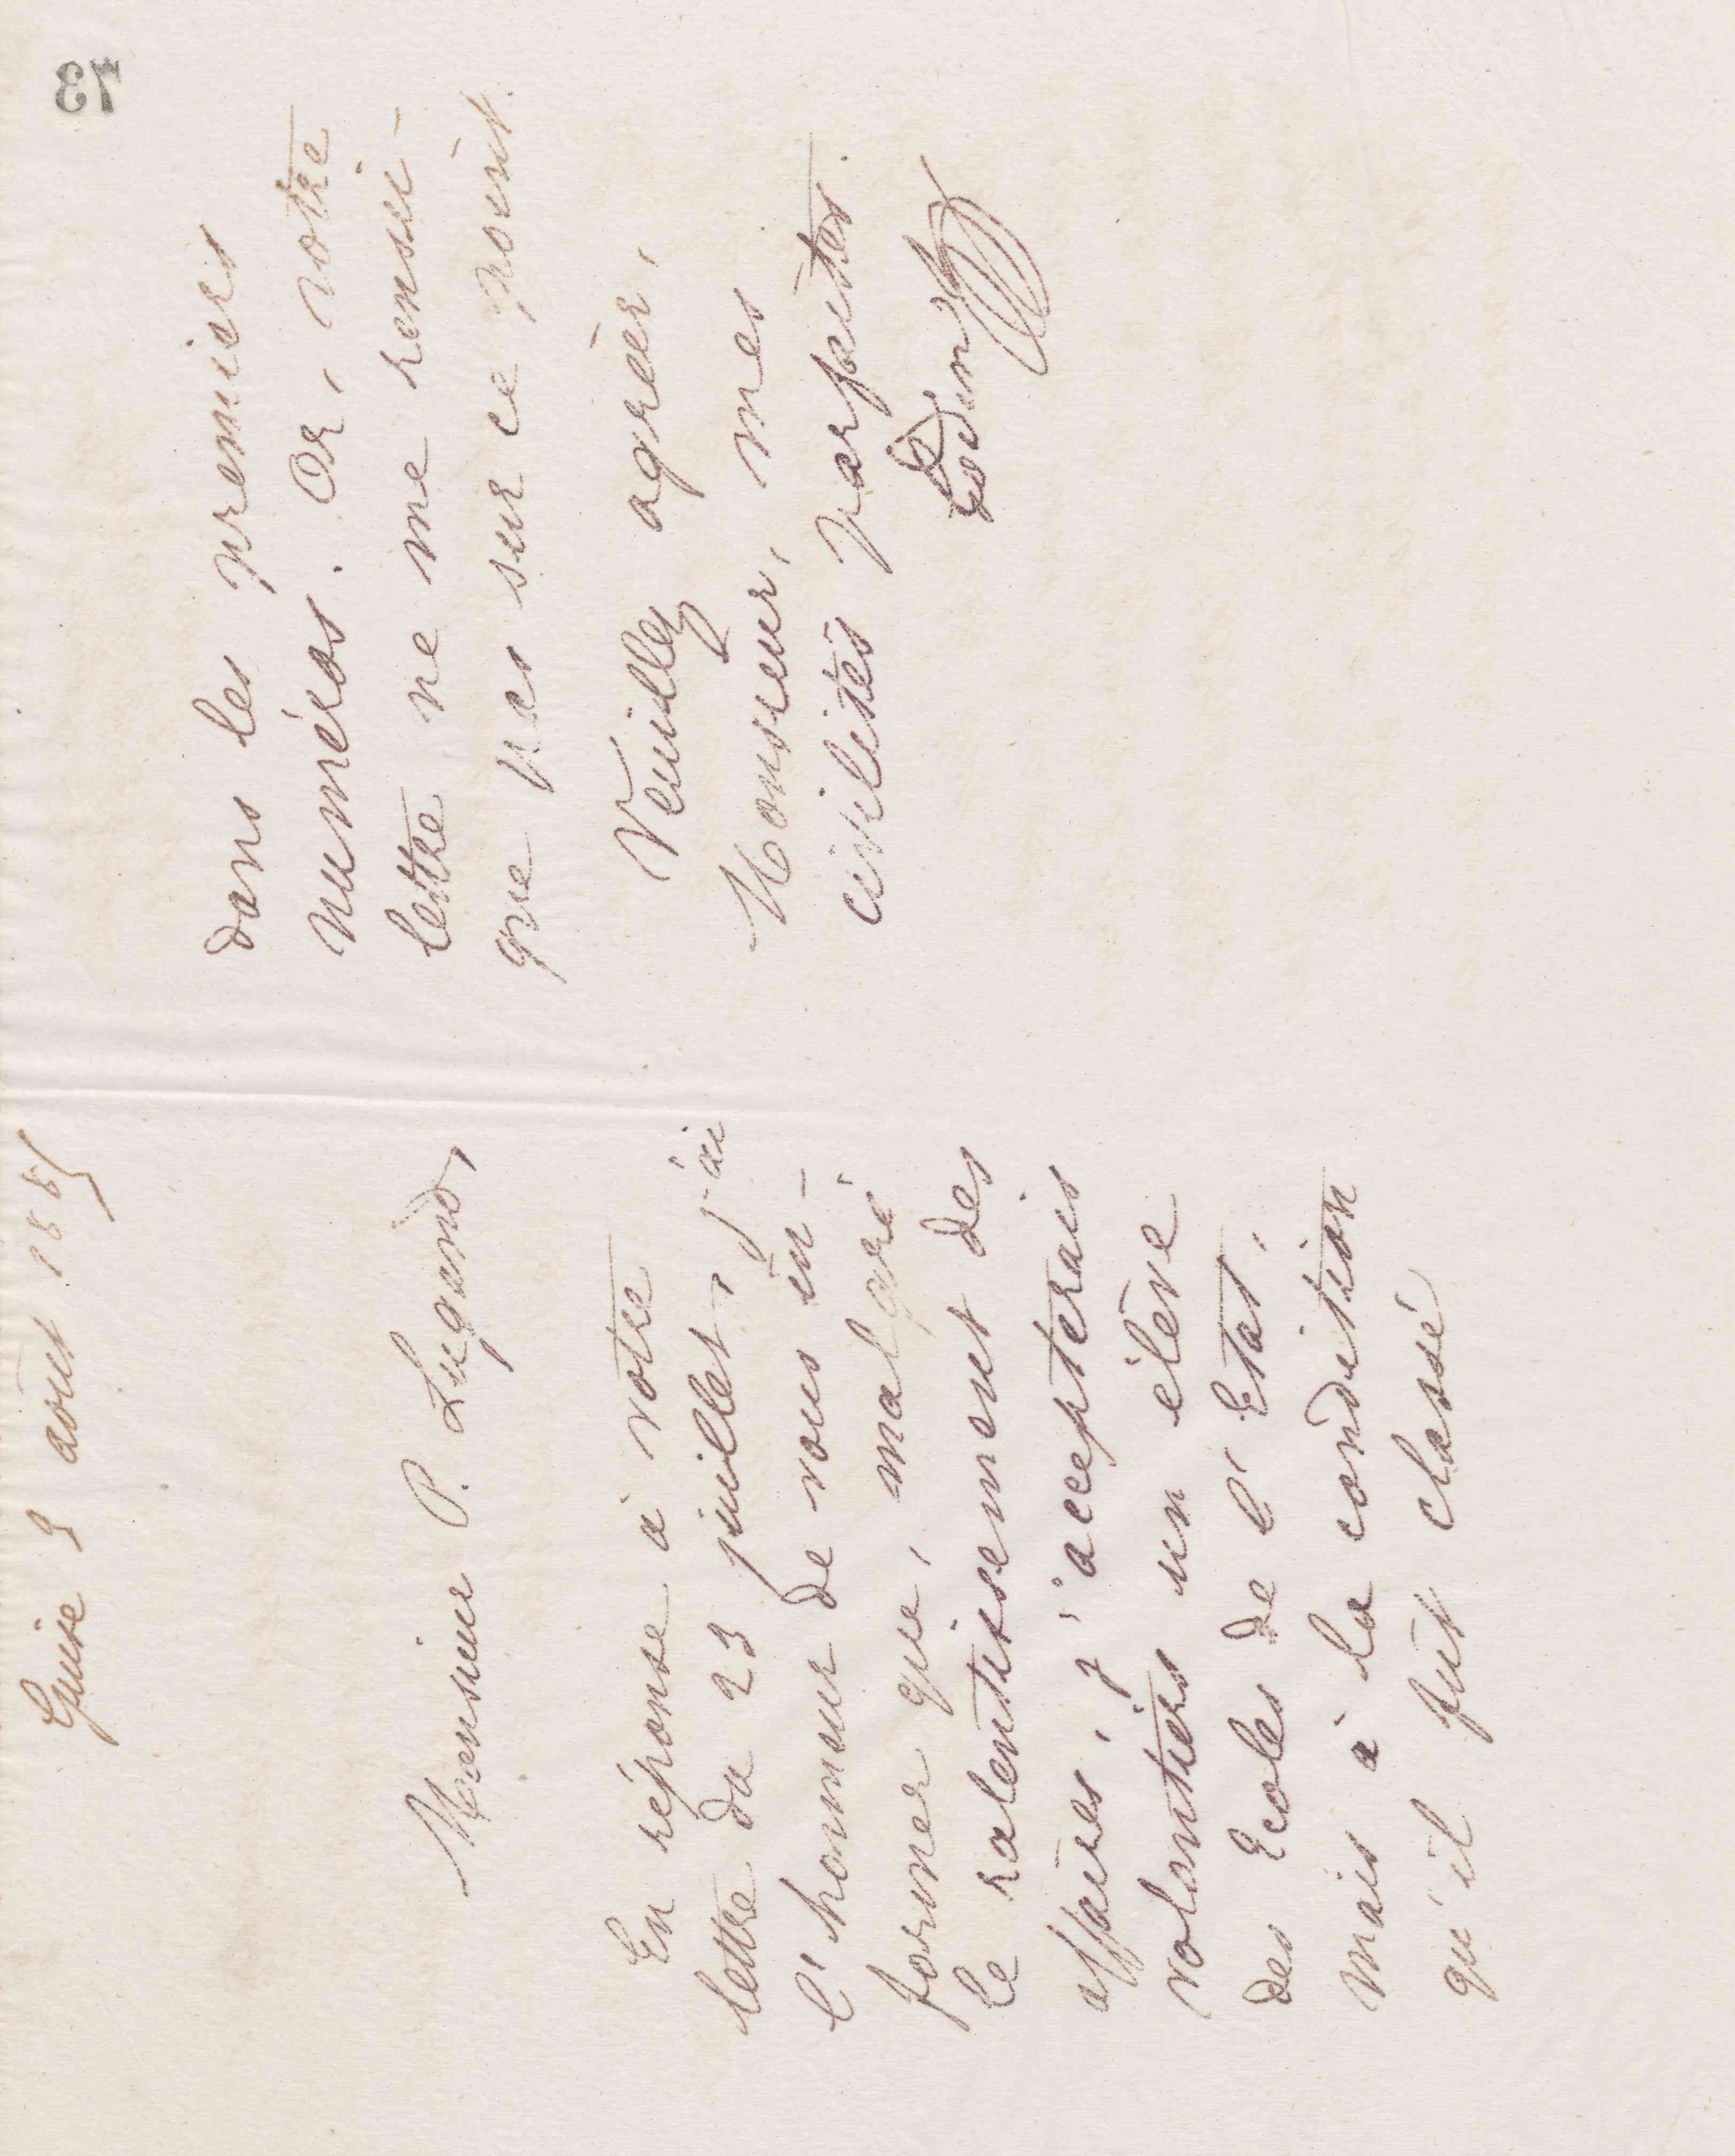 73
Guise 9 août 1885
Monsieur P. Lugand,
En réponse à votre
lettre du 23 juillet, j'ai
l'honneur de vous in-
former que, malgré
le ralentissement des
affaires, j'accepterais
volontiers un élève
des Ecoles de l'Etat,
mais à la condition
qu'il fut classé
dans les premiers
numéros. Or, votre
lettre ne me rensei-
gne pas sur ce point.
Veuillez agréer,
Monsieur, mes
civilités parfaites.
Godin